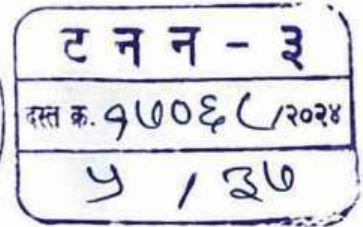 ट न न - ३
दस्त क्र. १७०६८/२०२४
५ / ३७